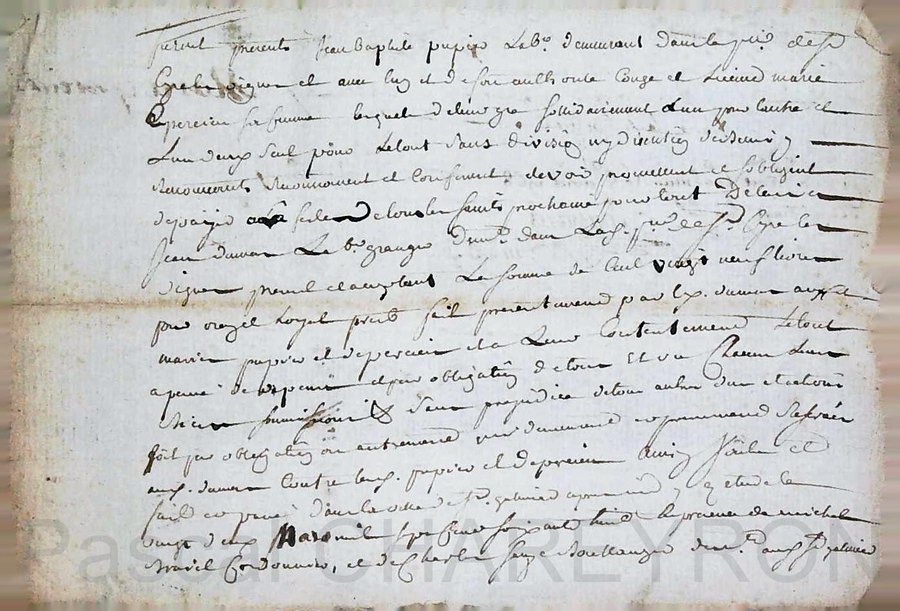 furent presents Jean Baptiste pupier Labr. demeurant dans la psse. de St
Cyre les vignes et avec luy et de son authorité Conge et Licence marie
Epercieu sa femme lesquels de leur gre sollidairement L'un pour l'autre et
L'un d'eux seul pour Le tout sans division ny discution de biens y
Renoncants Reconnoissent et Confessent devoir promettent et s'obligent
de payer a la feste de tous les saints prochaine pour tout delai a
Jean dumas Labr. granger demt. dans La psse. de St Cyre les
vignes present et acceptant La somme de Cent vingt neuf livres
pour vray et Loyal prest fait presentement par led. dumas auxd.
maries pupier et depercieu et a Leur Contentement Le tout
a peine de depens et par obligation de tous et un Chacun Leurs
biens soumissions &c sans prejudice de tous autres dus et actions
soit par obligation ou autrement que demeurent reservés
aud. dumas contre lesd. pupier et depercieu ainsy fait et
passé dans la ville de St galmier apres midy en etude le
vingt deux mars mil sept Cent soixante huit En presence de michel
Cordonnier, et de Charles Boullanger demt. aud. St galmier
Pascal CHAREYRON